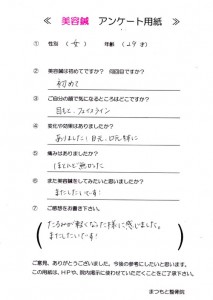 ≪ 美容鍼 アンケート用紙 ≫
① 性別 （女） 年齢（29才）
② 美容鍼は初めてですか？ 何回目ですか？
初めて
③ ご自分の顔で気になるところはどこですか？
目もと、フェイスライン
④ 変化や効果はありましたか？
ありました！目元、口元特に
⑤ 痛みはありましたか？
ほとんど無かった
⑥ また美容鍼をしてみたいと思いましたか？
またしたいです！
⑦ ご感想をお書き下さい。
たるみが軽くなった様に感じました。
またしたいです！
ご意見、ありがとうございました。今後の参考にしたいと思います。
この用紙は、HPや、院内掲示に使わせていただくことをご了承下さい。
まつもと整骨院